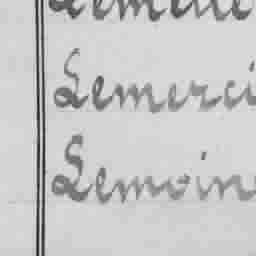 Lemerci
Lemoin